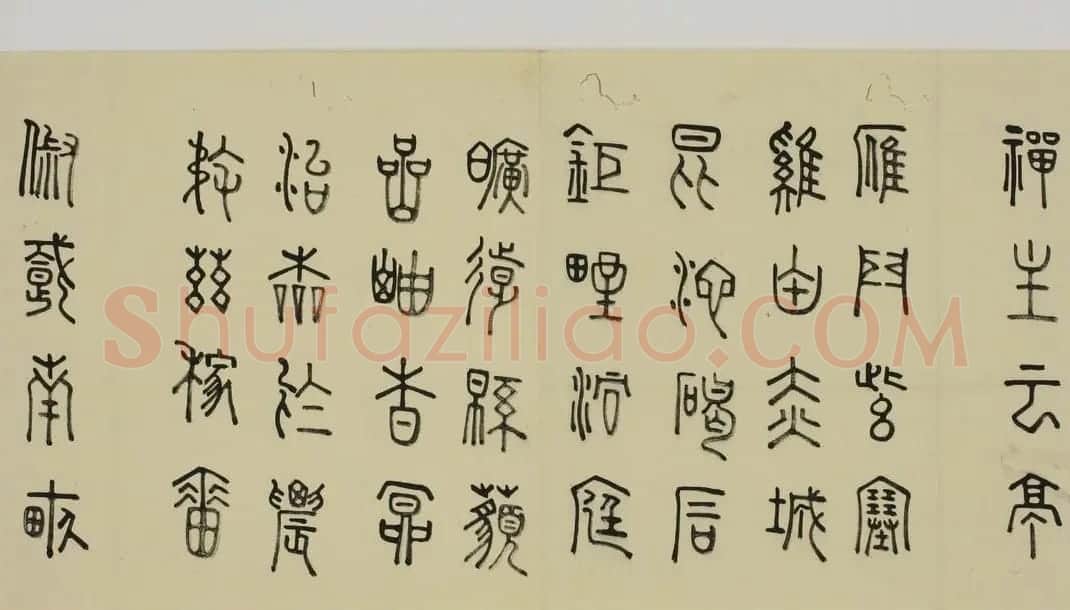 禪主云亭
雁門紫塞
雞田赤城
昆池碣石
鉅野洞庭
曠遠緜藐
嵒岫杳冥
治本於農
務茲稼嗇
俶載南畝
Shufaziliao.COM